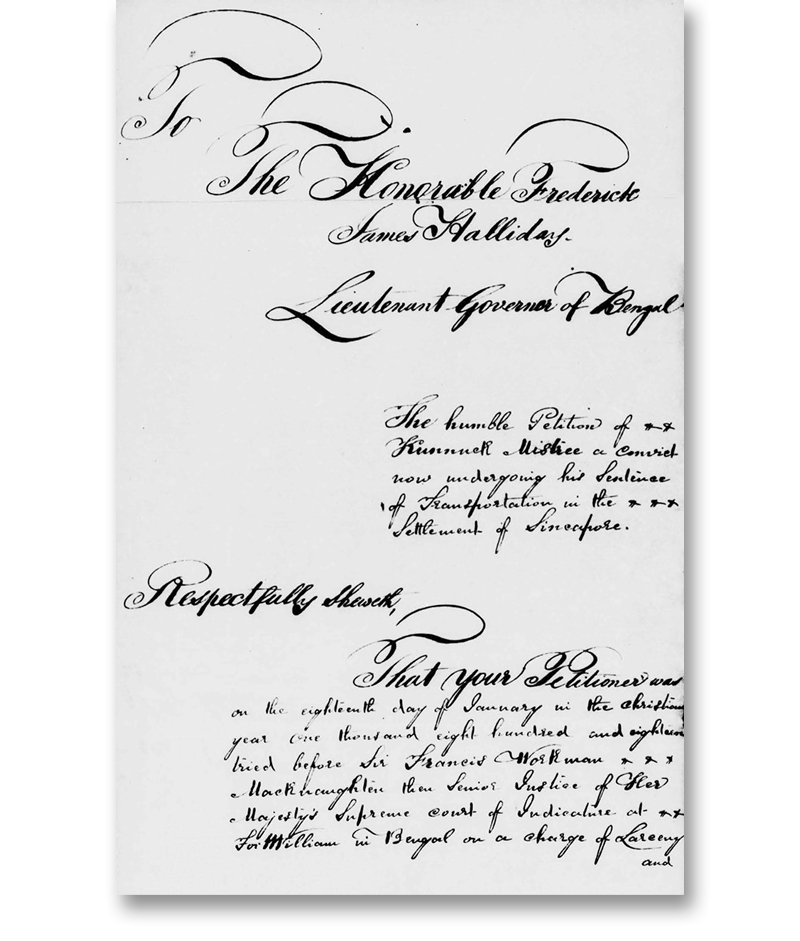 To
The Honorable Frederick
James Halliday.
Lieutenant Governor of Bengal
The humble Petition of * *
Kunnuck Mistree a Convict
now undergoing his Sentence
of Transportation in the * * *
Settlement of Sincapore.
Respectfully Sheweth,
That your Petitioner was
on the eighteenth day of January in the Christian
year one thousand eight hundred and eighteen
tried before Sir Francis Workman * * *
Macknaughten then Senior Justice of Her
Majesty's Supreme Court of Judicature at * *
Fort William in Bengal on a charge of Larceny
and